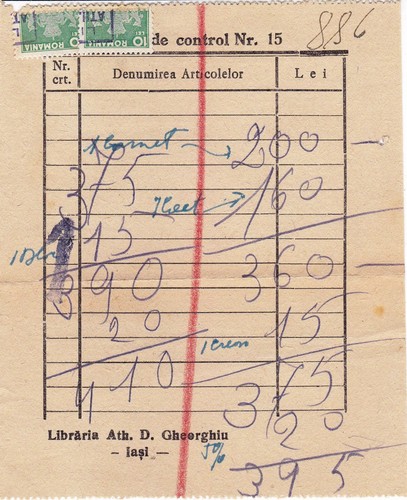 ATH
ROMANIA ROMANIA
10 LEI
de control Nr. 15 886
Nr. crt. Denumirea Articolelor Lei
1 Carnet 200
375
160
15
390 360
20 15
1 creion
410 375
20
Librăria Ath. D. Gheorghiu
- Iași -
395